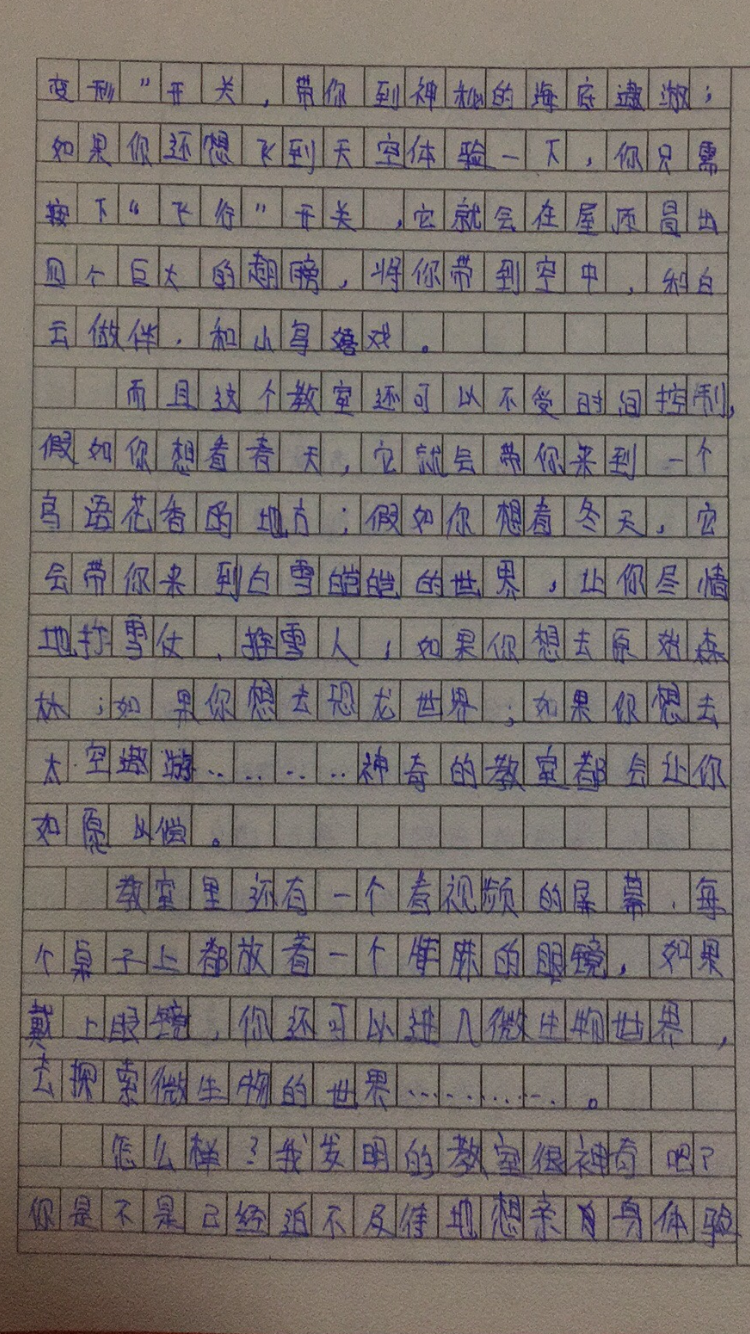 变形”开关，带你到神秘的海底遨游；
如果你还想飞到天空体验一下，你只需
按下“飞行”开关，它就会在屋顶冒出
四个巨大的翅膀，将你带到空中，和白
云做伴，和小鸟嬉戏。
而且这个教室还可以不受时间控制，
假如你想看春天，它就会带你来到一个
鸟语花香的地方；假如你想看冬天，它
会带你来到白雪皑皑的世界，让你尽情
地打雪仗，堆雪人；如果你想去原始森
林；如果你想去恐龙世界；如果你想去
太空遨游……神奇的教室都会让你
如愿以偿。
教室里还有一个看视频的屏幕，每
个桌子上都放着一个特殊的眼镜，如果
戴上眼镜，你还可以进入微生物世界，
去探索微生物的世界…………。
怎么样？我发明的教室很神奇吧？
你是不是已经迫不及待地想亲自身体验